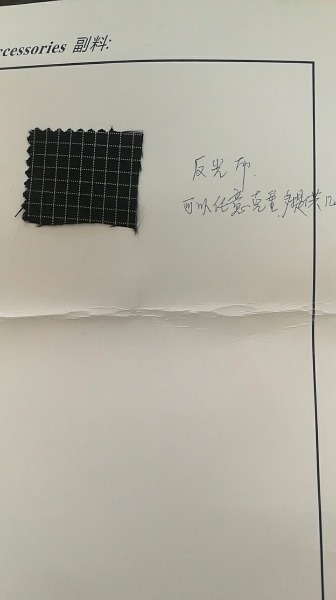 ccessories 副料:
反光布.
可以任意克重,多提供几